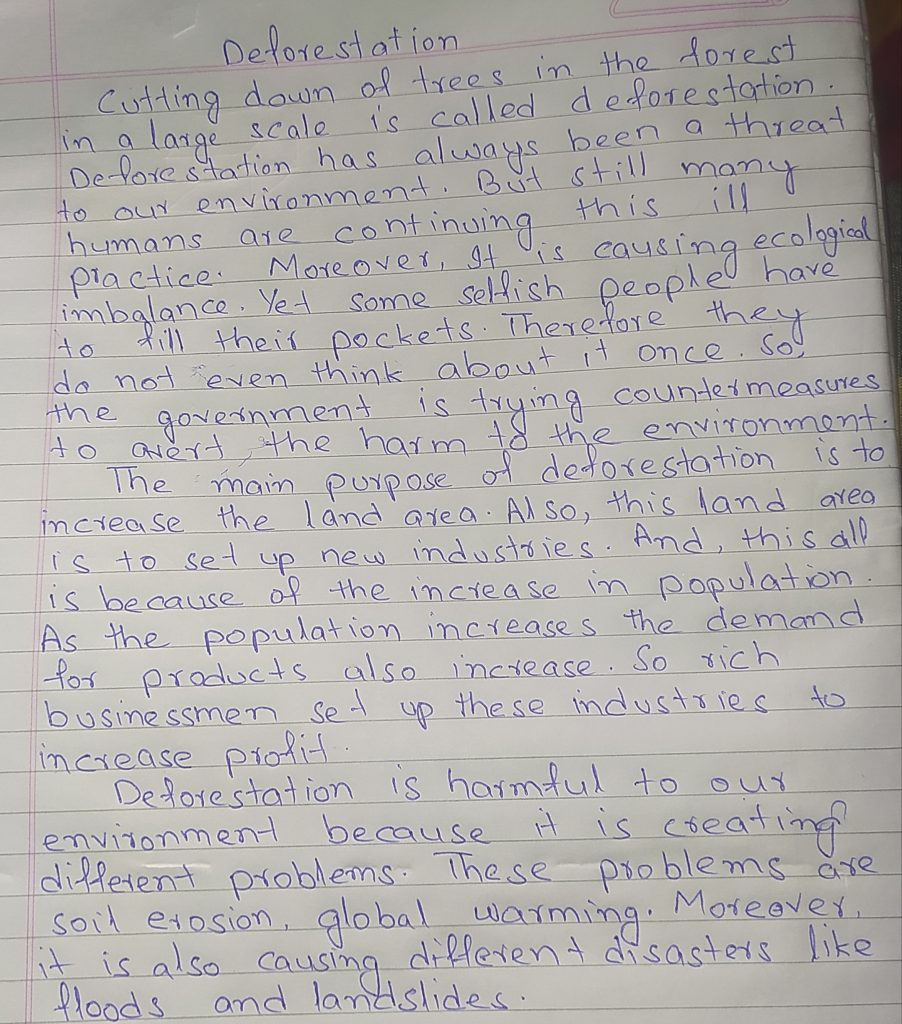 Deforestation
Cutting down of trees in the forest
in a large scale is called deforestation.
Deforestation has always been a threat
to our environment. But still many
humans are continuing this ill
practice. Moreover, It is causing ecological
imbalance. Yet some selfish people have
to fill their pockets. Therefore they
do not even think about it once. So,
the government is trying countermeasures
to avert the harm to the environment.
The main purpose of deforestation is to
increase the land area. Also, this land area
is to set up new industries. And, this all
is because of the increase in population.
As the population increases the demand
for products also increase. So rich
businessmen set up these industries to
increase profit.
Deforestation is harmful to our
environment because it is creating
different problems. These problems are
soil erosion, global warming. Moreover,
it is also causing different disasters like
floods and landslides.